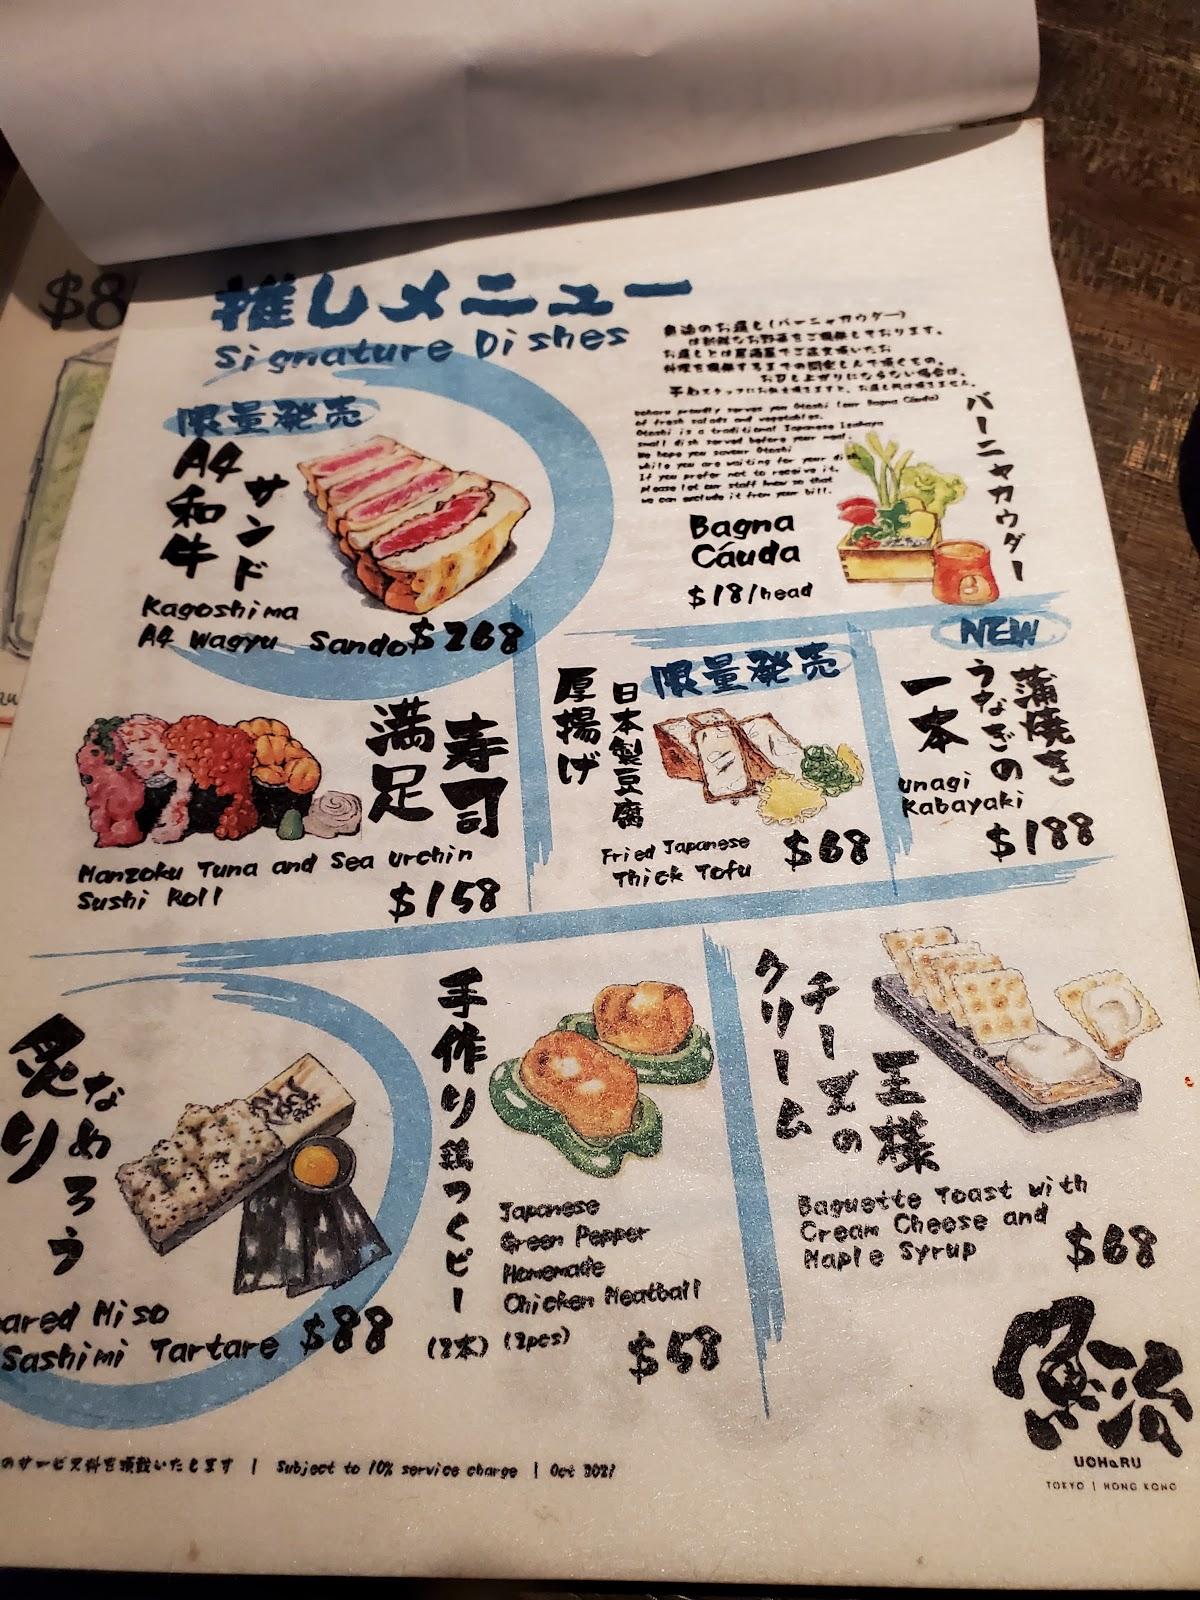 $8
推しメニュー
Signature Dishes
お通し(バーニャカウダー)
は新鮮なお野菜をご提供しております。
料理を提供するまでの間楽しんで頂くもの。
お召し上がりにならない場合は、
proudly serves you Otoshi (our Bagna Cáuda)
of fresh salads and vegetables.
Otoshi is a traditional Japanese Izakaya
small dish served before your meal.
We hope you savour Otoshi
while you are waiting for your
If you prefer not to receive it,
please let our staff know so that
we can exclude it from your bill.
バーニャカウダー
Bagna
Cáuda
$18/head
限量発売
A4和牛
サンド
Kagoshima
A4 Wagyu Sando $268
寿司
満足
Manzoku Tuna and Sea Urchin
Sushi Roll
$158
限量発売
日本製豆腐
厚揚げ
Fried Japanese
Thick Tofu
$68
NEW
蒲焼き
うなぎの
一本
Unagi
Kabayaki
$188
炙り
なめろう
ared Miso
Sashimi Tartare $88
手作り鶏つくピー
Japanese
Green Pepper
Homemade
Chicken Meatball
(2本) (2pcs)
$58
王様
チーズの
クリーム
Baguette Toast with
Cream Cheese and
Maple Syrup
$68
魚治
UOHaRU
TOKYO | HONG KONG
のサービス料を頂戴いたします | Subject to 10% service charge | Oct 2021